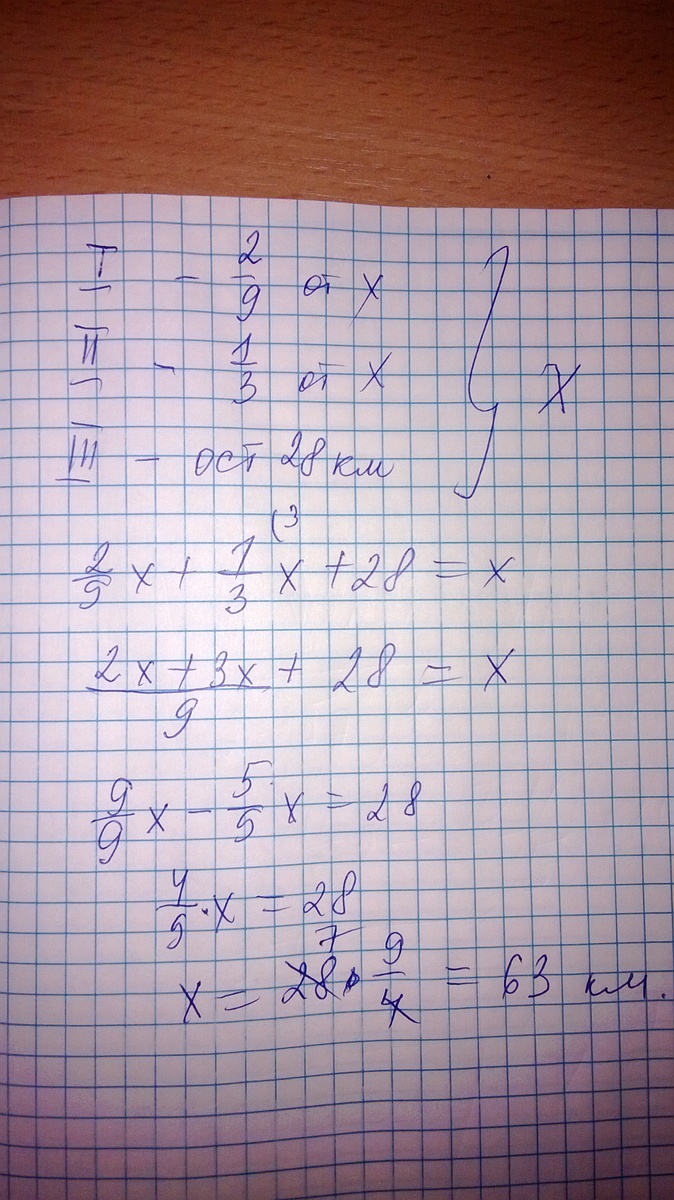 I - 2/9 от x
II - 1/3 от x
III - ост 28 км
} X
2/9 x + 1/3 (3 x + 28 = x
(2x + 3x)/9 + 28 = x
9/9 x - 5/9 x = 28
4/9 · x = 28
x = 28 7 · 9/4 = 63 км.